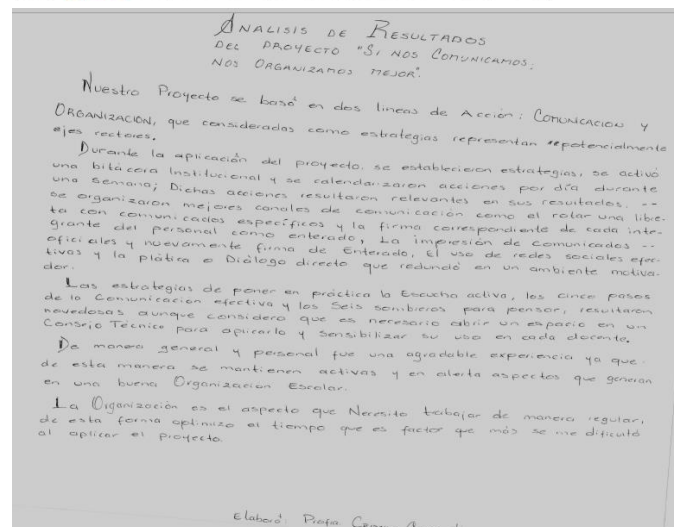 ANALISIS DE RESULTADOS
DEL PROYECTO "SI NOS COMUNICAMOS,
NOS ORGANIZAMOS MEJOR".
Nuestro Proyecto se basó en dos lineas de Acción: COMUNICACION y
ORGANIZACIÓN, que consideradas como estrategias representan potencialmente
ejes rectores.
Durante la aplicación del proyecto, se establecieron estrategias, se activó
una bitácora Institucional y se calendarizaron acciones por día durante
una semana; Dichas acciones resultaron relevantes en sus resultados. --
se organizaron mejores canales de comunicación como el rotar una libre-
ta con comunicados específicos y la firma correspondiente de cada inte-
grante del personal como enterado, La impresión de comunicados --
oficiales y nuevamente firma de Enterado, El uso de redes sociales efec-
tivas y la plática o Diálogo directo que redundó en un ambiente motiva-
dor.
Las estrategias de poner en práctica la Escucha activa, los cinco pasos
de la Comunicación efectiva y los Seis sombreros para pensar, resultaron
novedosas aunque considero que es necesario abrir un espacio en un
Consejo Técnico para aplicarlo y sensibilizar su uso en cada docente.
De manera general y personal fue una agradable experiencia ya que
de esta manera se mantienen activas y en alerta aspectos que generan
en una buena Organización Escolar.
La Organización es el aspecto que Necesito trabajar de manera regular,
de esta forma optimizo el tiempo que es factor que más se me dificultó
al aplicar el proyecto.
Elaboró: Profa